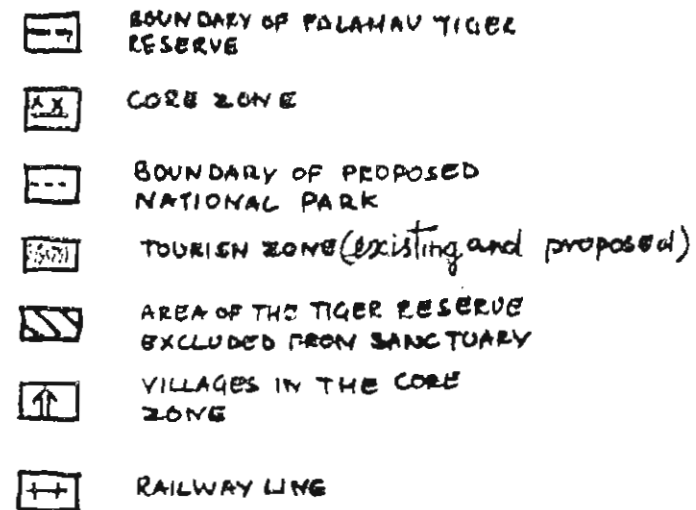 BOUNDARY OF PALAMAU TIGER
RESERVE
CORE ZONE
BOUNDARY OF PROPOSED
NATIONAL PARK
TOURISM ZONE (existing and proposed)
AREA OF THE TIGER RESERVE
EXCLUDED FROM SANCTUARY
VILLAGES IN THE CORE
ZONE
RAILWAY LINE